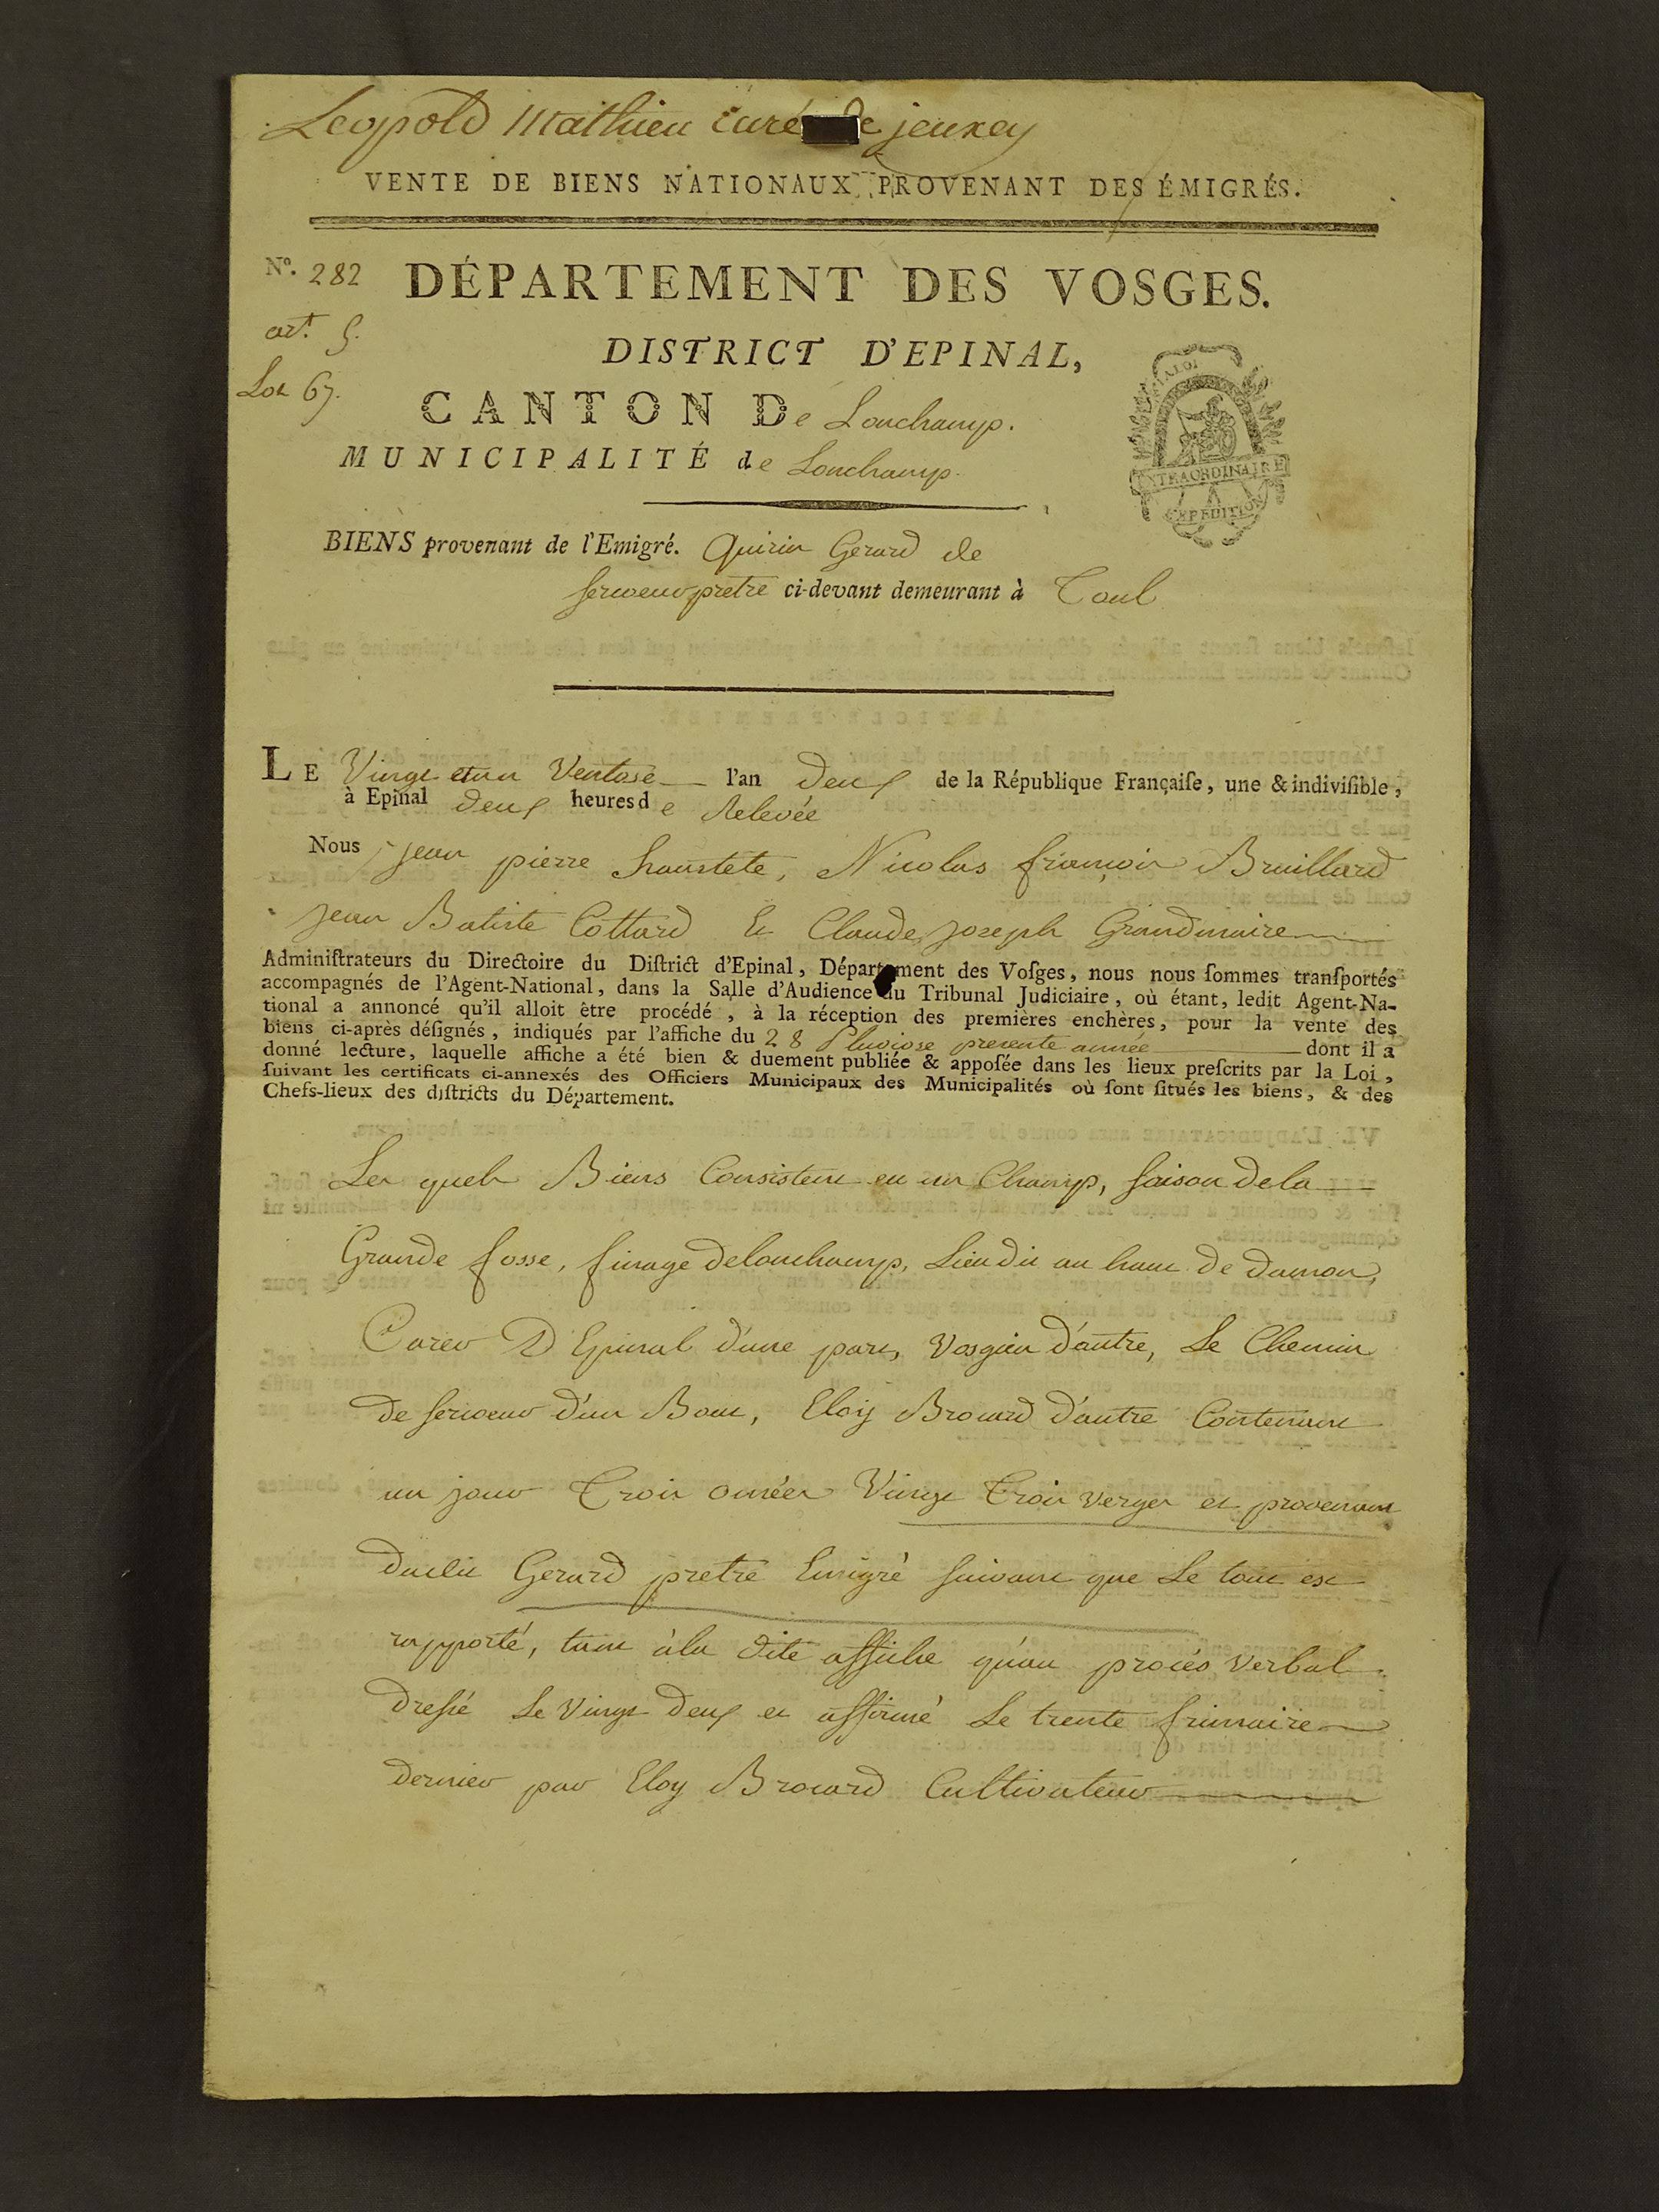 Leopold Mathieu curé de jeuxey
VENTE DE BIENS NATIONAUX PROVENANT DES ÉMIGRÉS.
Nº. 282 DÉPARTEMENT DES VOSGES.
art. 5.
DISTRICT D'EPINAL,
Lot 67.
CANTON De Lonchamp.
MUNICIPALITÉ de Lonchamp.
LA LOI
EXTRAORDINAIRE
EXPEDITION
BIENS provenant de l'Emigré. Quirin Gerard de
sercoeur pretre ci-devant demeurant à Toul
LE Vingt et un Ventose l'an deux de la République Françaiſe, une & indiviſible,
à Epinal deux heures de Relevée
Nous jean pierre hautete, Nicolas françois Bruillard
jean Batiste Cottard Et Claude joseph Grandmaire
Adminiſtrateurs du Directoire du Diſtrict d'Epinal, Département des Voſges, nous nous ſommes tranſportés
accompagnés de l'Agent-National, dans la Salle d'Audience du Tribunal Judiciaire, où étant, ledit Agent-Na-
tional a annoncé qu'il alloit être procédé, à la réception des premières enchères, pour la vente des
biens ci-après déſignés, indiqués par l'affiche du 28 Pluviose presente année dont il a
donné lecture, laquelle affiche a été bien & duement publiée & appoſée dans les lieux preſcrits par la Loi,
ſuivant les certificats ci-annexés des Officiers Municipaux des Municipalités où ſont ſitués les biens, & des
Chefs-lieux des diſtricts du Département.
Les quels Biens Consistent en un Champ, saison de la
Grande fosse, finage delonchamp, Lieu dit au haut de damon,
D'Epinal d'une part, Vosgien d'autre, Le Chemin
de sercoeur d'un Bout, Eloij Brocard d'autre Contenant
un jour Trois omées Vingt Trois verges et provenant
dudit Gerard pretre Emigré suivant que Le tout est
rapporté, tant àla dite affiche qu'au procés verbal
dressé Le Vingt deux et affirmé Le trente frimaire
dernier par Eloy Brocard Cultivateur